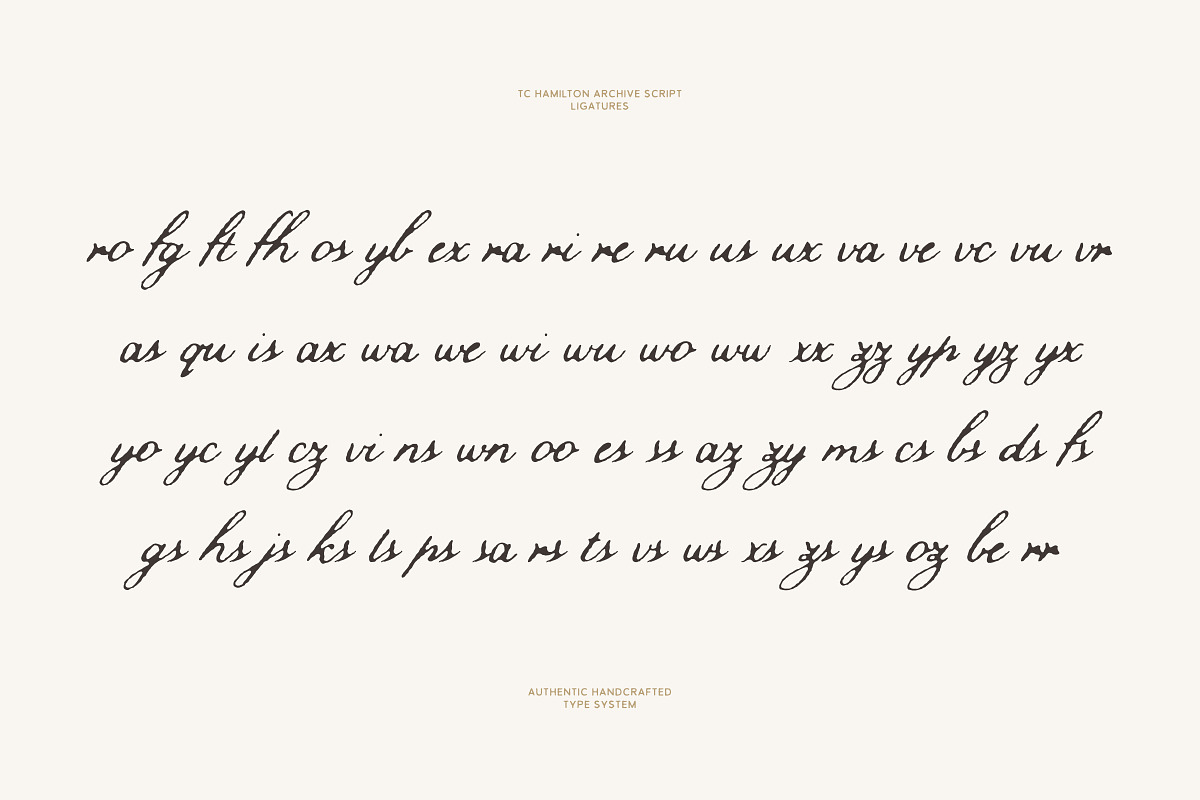 TC HAMILTON ARCHIVE SCRIPT
LIGATURES
ro fg ft fh os yb ex ra ri re ru us ux va ve vc vu vr
as qu is ax wa we wi wu wo wv xx zz yp yz yx
yo yc yl cz vi ns wn oo es ss az zy ms cs bs ds fs
gs hs js ks ls ps sa rs ts vs ws xs zs ys oz be rr
AUTHENTIC HANDCRAFTED
TYPE SYSTEM